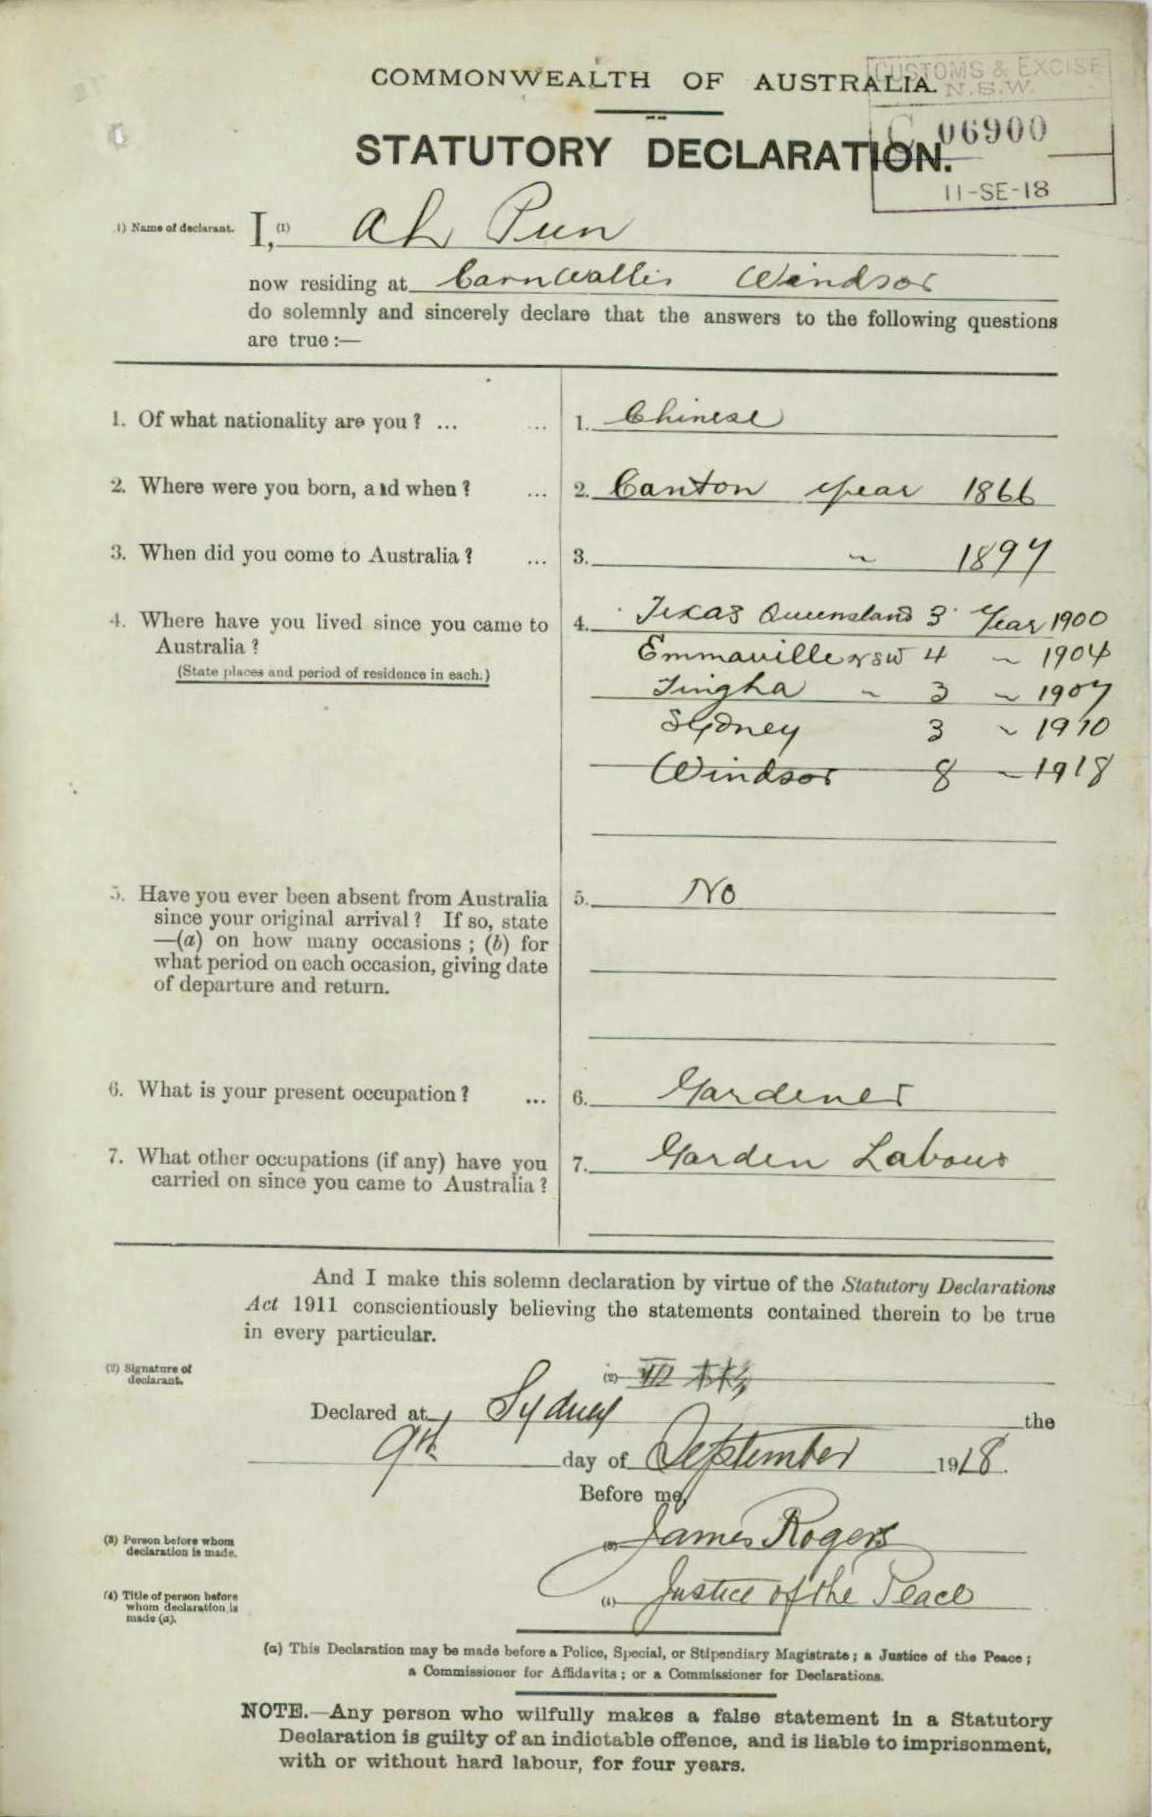 CUSTOMS & EXCISE
N.S.W.
COMMONWEALTH OF AUSTRALIA.
C 06900
STATUTORY DECLARATION.
11-SE-18
(1) Name of declarant. I, (1) Ah Pun
now residing at Cornwallis Windsor
do solemnly and sincerely declare that the answers to the following questions
are true :—
1. Of what nationality are you ? ... ... 1. Chinese
2. Where were you born, and when ? ... 2. Canton year 1866
3. When did you come to Australia ? ... 3. " 1897
4. Where have you lived since you came to 4. Texas Queensland 3 Year 1900
Australia ?
(State places and period of residence in each.)
Emmaville NSW 4 " 1904
Tingha " 3 " 1907
Sydney 3 " 1910
Windsor 8 " 1918
5. Have you ever been absent from Australia 5. No
since your original arrival ? If so, state
—(a) on how many occasions ; (b) for
what period on each occasion, giving date
of departure and return.
6. What is your present occupation ? ... 6. Gardener
7. What other occupations (if any) have you 7. Garden Labour
carried on since you came to Australia ?
And I make this solemn declaration by virtue of the Statutory Declarations
Act 1911 conscientiously believing the statements contained therein to be true
in every particular.
(2) Signature of
declarant.
(2)
Declared at Sydney the
9th day of September 1918.
Before me,
(3) Person before whom
declaration is made.
(3) James Rogers
(4) Title of person before
whom declaration is
made (a).
(4) Justice of the Peace
(a) This Declaration may be made before a Police, Special, or Stipendiary Magistrate ; a Justice of the Peace ;
a Commissioner for Affidavits ; or a Commissioner for Declarations.
NOTE.—Any person who wilfully makes a false statement in a Statutory
Declaration is guilty of an indictable offence, and is liable to imprisonment,
with or without hard labour, for four years.